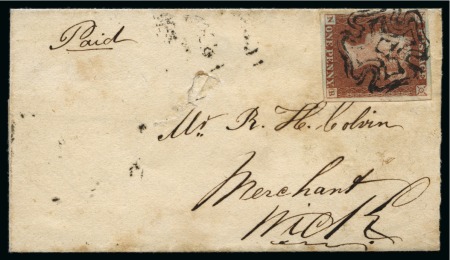 Paid
ONE PENNY
Mr R. H. Colvin
Merchant
Wick